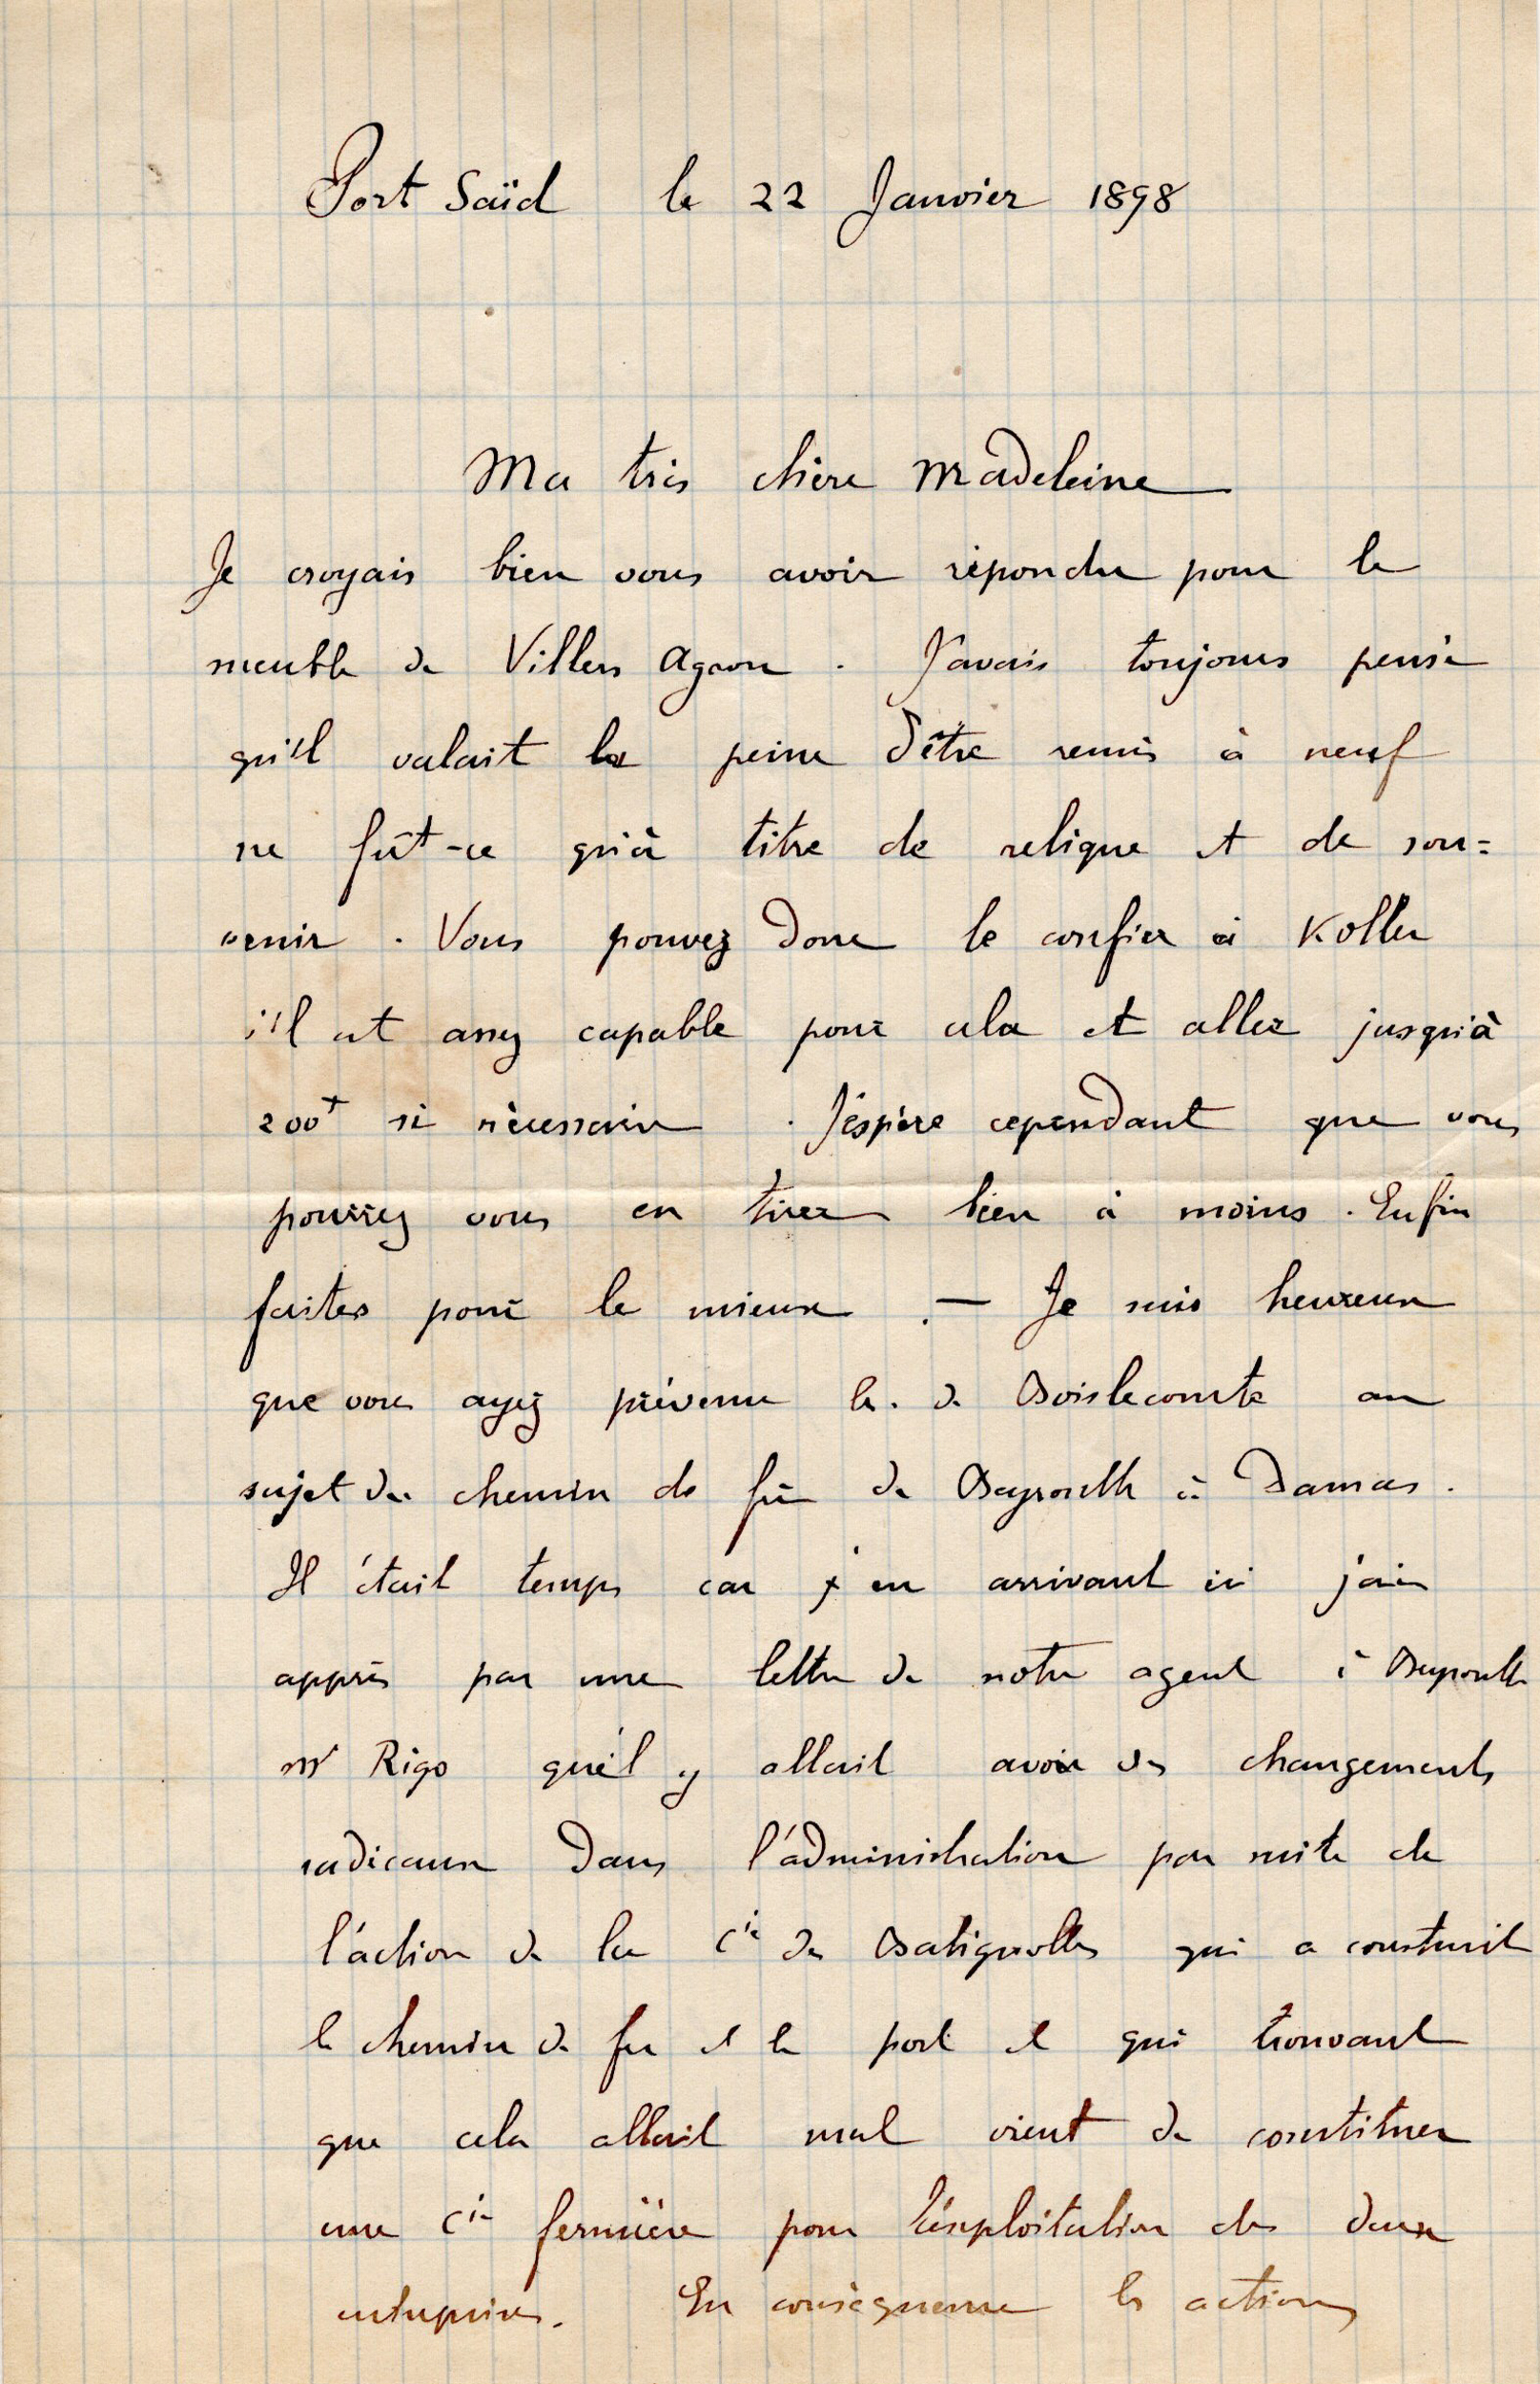 Port Saïd le 22 Janvier 1898
Ma très chère Madeleine
Je croyais bien vous avoir répondu pour le
meuble de Villers Agron. J'avais toujours pensé
qu'il valait la peine d'être remis à neuf
ne fût-ce qu'à titre de relique et de sou=
venir. Vous pouvez donc le confier à Koller
s'il est assez capable pour cela et aller jusqu'à
200f si nécessaire. J'éspère cependant que vous
pourrez vous en tirer bien à moins. Enfin
faites pour le mieux. — Je suis heureux
que vous ayez prévenu le. de Boislecomte au
sujet du chemin de fer de Beyrouth à Damas.
Il était temps car en arrivant ici j'ai
appris par une lettre de notre agent à Beyrouth
Mr Rigo qu'il y allait avoir des changements
radicaux dans l'administration par suite de
l'action de la Cie de Batignolles qui a construit
le chemin de fer et le port et qui trouvant
que cela allait mal vient de constituer
une Cie fermière pour l'éxploitation des deux
entreprises. En conséquence les actions